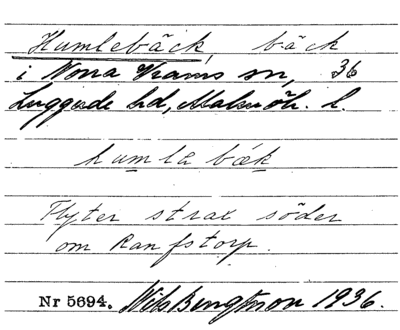 Humlebäck, bäck
i Norra Vrams sn, 36
Luggude hd, Malmöh. l.
humla bäk
Flyter strax söder
om Ranfstorp.
Nr 5694. Nils Bengtsson 1936.